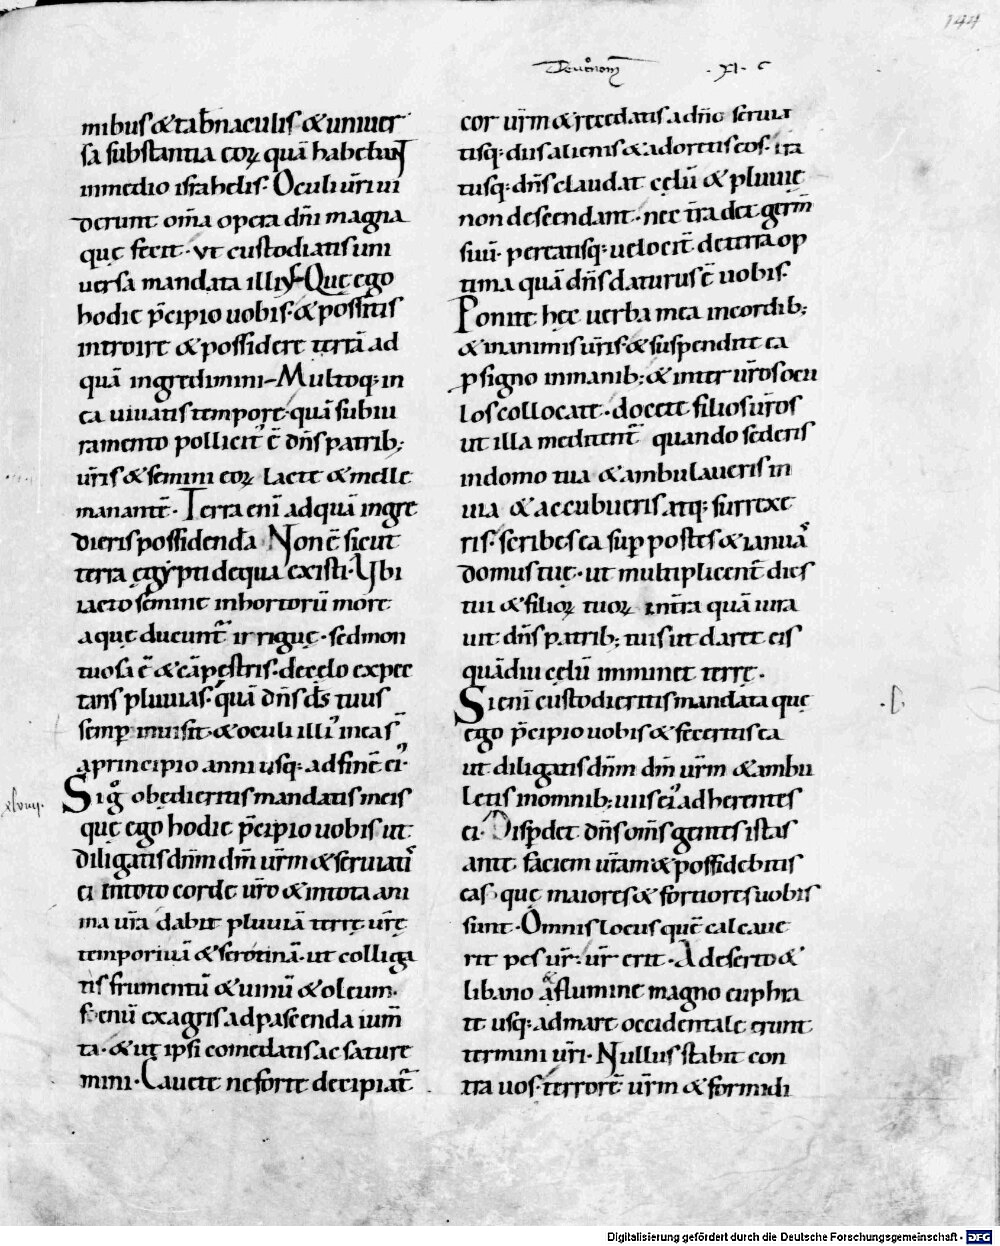 144
Deut̾onom̄ · XI · c
mibus & tab̄naculis & uniuer
sa substantia eoꝝ quā habebant
inmedio israhelis· Oculi ur̄i ui
derunt om̄a opera dn̄i magna
quę fecit· ut custodiatis uni
uersa mandata illiꝰ· Quę ego
hodie p̄cipio uobis· & possitis
introire & possidere terrā ad
quā ingredimini– Multoq; in
ea uiuatis tempore· quā subiu
ramento pollicitꝰ ē dn̄s patrib;
ur̄is & semini eoꝝ lacte & melle
manantē· Terra eni adquā ingre
dieris possidendā Non ē sicut
terra ęgypti dequa existi· Ubi
iacto semine inhortorū more
aquę ducunt̄ irriguę· sedmon
tuosa ē & cāpęstris· decęlo expec
tans pluuias· quā dn̄s ds̄ tuus
semꝑ inuisit· & oculi illiꝰ ineas̄
aprincipio anni usq; adfinē eiꝰ·
xlviiii.
Sigͦ obedieritis mandatis meis
quę ego hodie p̄cipio uobis ut
diligatis dn̄m dm̄ ur̄m & seruiatiˢ
ei intoto corde ur̄o & intota ani
ma ur̄a dabit pluuiā terrę ur̄ę
temporiuā & serotinā· ut colliga
tis frumentū & uinū & oleum·
foenū exagris adpascenda ium̄
ta· & ut ipsi comedatis ac sature
mini· Cauete neforte decipiat̄
cor ur̄m & recedatis adn̄o seruia
tisq; diis alienis & adoretis eos· ira
tusq; dn̄s claudat cęlū & pluuię
non descendant· nec t̄ra det germ̄
suū· pereatisq; uelocit̄ deterra op
tima quā dn̄s daturus ē uobis·
Ponite hęc uerba mea incordib;
& inanimis ur̄is & suspendite ea
ꝓsigno inmanib; & inter ur̄os ocu
los collocate· docete filios ur̄os
ut illa meditent̄ quando sederis
indomo tua & ambulaueris in
uia & accubueris atq; surrexe
ris· scribes ea suꝑ postes & ianuā
domus tuę· ut multiplicent̄ dies
tui & filioꝝ tuoꝝ int̄ra quā iura
uit dn̄s patrib; tuis ut daret eis
quādiu cęlū imminet terrę·
Si eni custodieritis mandata quę
ego p̄cipio uobis & feceritis ea
ut diligatis dn̄m dm̄ ur̄m & ambu
letis inomnib; uiis eiꝰ adherentes
ei· Disꝑdet dn̄s om̄s gentes istas
ante faciem ur̄am & possidebitis
eas quę maiores & fortiores uobis
sunt· Omnis locus quē calcaue
rit pes ur̄· ur̄ erit· Adeserto &
libano & aflumine magno euphra
te usq; admare occidentale erunt
termini ur̄i· Nullus stabit con
tra uos· terrorē ur̄m & formidi
Digitalisierung gefördert durch die Deutsche Forschungsgemeinschaft - DFG